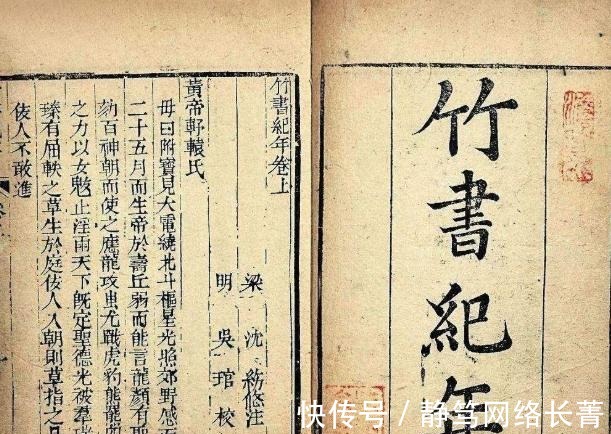 竹書紀年
竹書紀年卷上
梁 沈約附注
明 吳琯校
黃帝軒轅氏
母曰附寶見大電繞北斗樞星光照郊野感而
二十五月而生帝於壽丘弱而能言龍顏有
劾百神朝而使之應龍攻蚩尤戰虎豹熊羆
之力以女魃止淫雨天下既定聖德光被群
臻有屈軼之草生於庭佞人入朝則草指之
佞人不敢進
快传号/静笃网络长菁